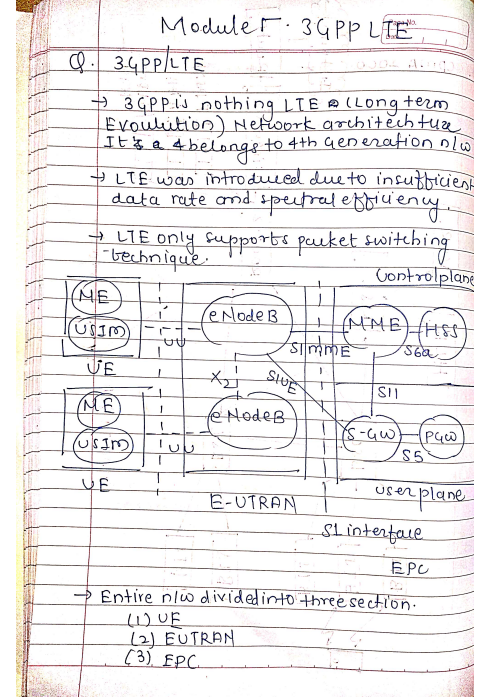 Module 5. 3GPP LTE
Q. 3GPP/LTE
→ 3GPP is nothing LTE (Long term
Evoulution) Network architechture
It's a 4 belongs to 4th Generation n/w
→ LTE was introduced due to insufficient
data rate and spectral efficiency.
→ LTE only supports packet switching
technique.
Control plane
ME
eNodeB
MME
HSS
USIM
UU
S1MME
S6a
UE
X2
S1UE
S11
ME
eNodeB
S-GW
PGW
USIM
UU
S5
UE
user plane
E-UTRAN
S1 interface
EPC
→ Entire n/w divided into three section.
(1) UE
(2) EUTRAN
(3) EPC